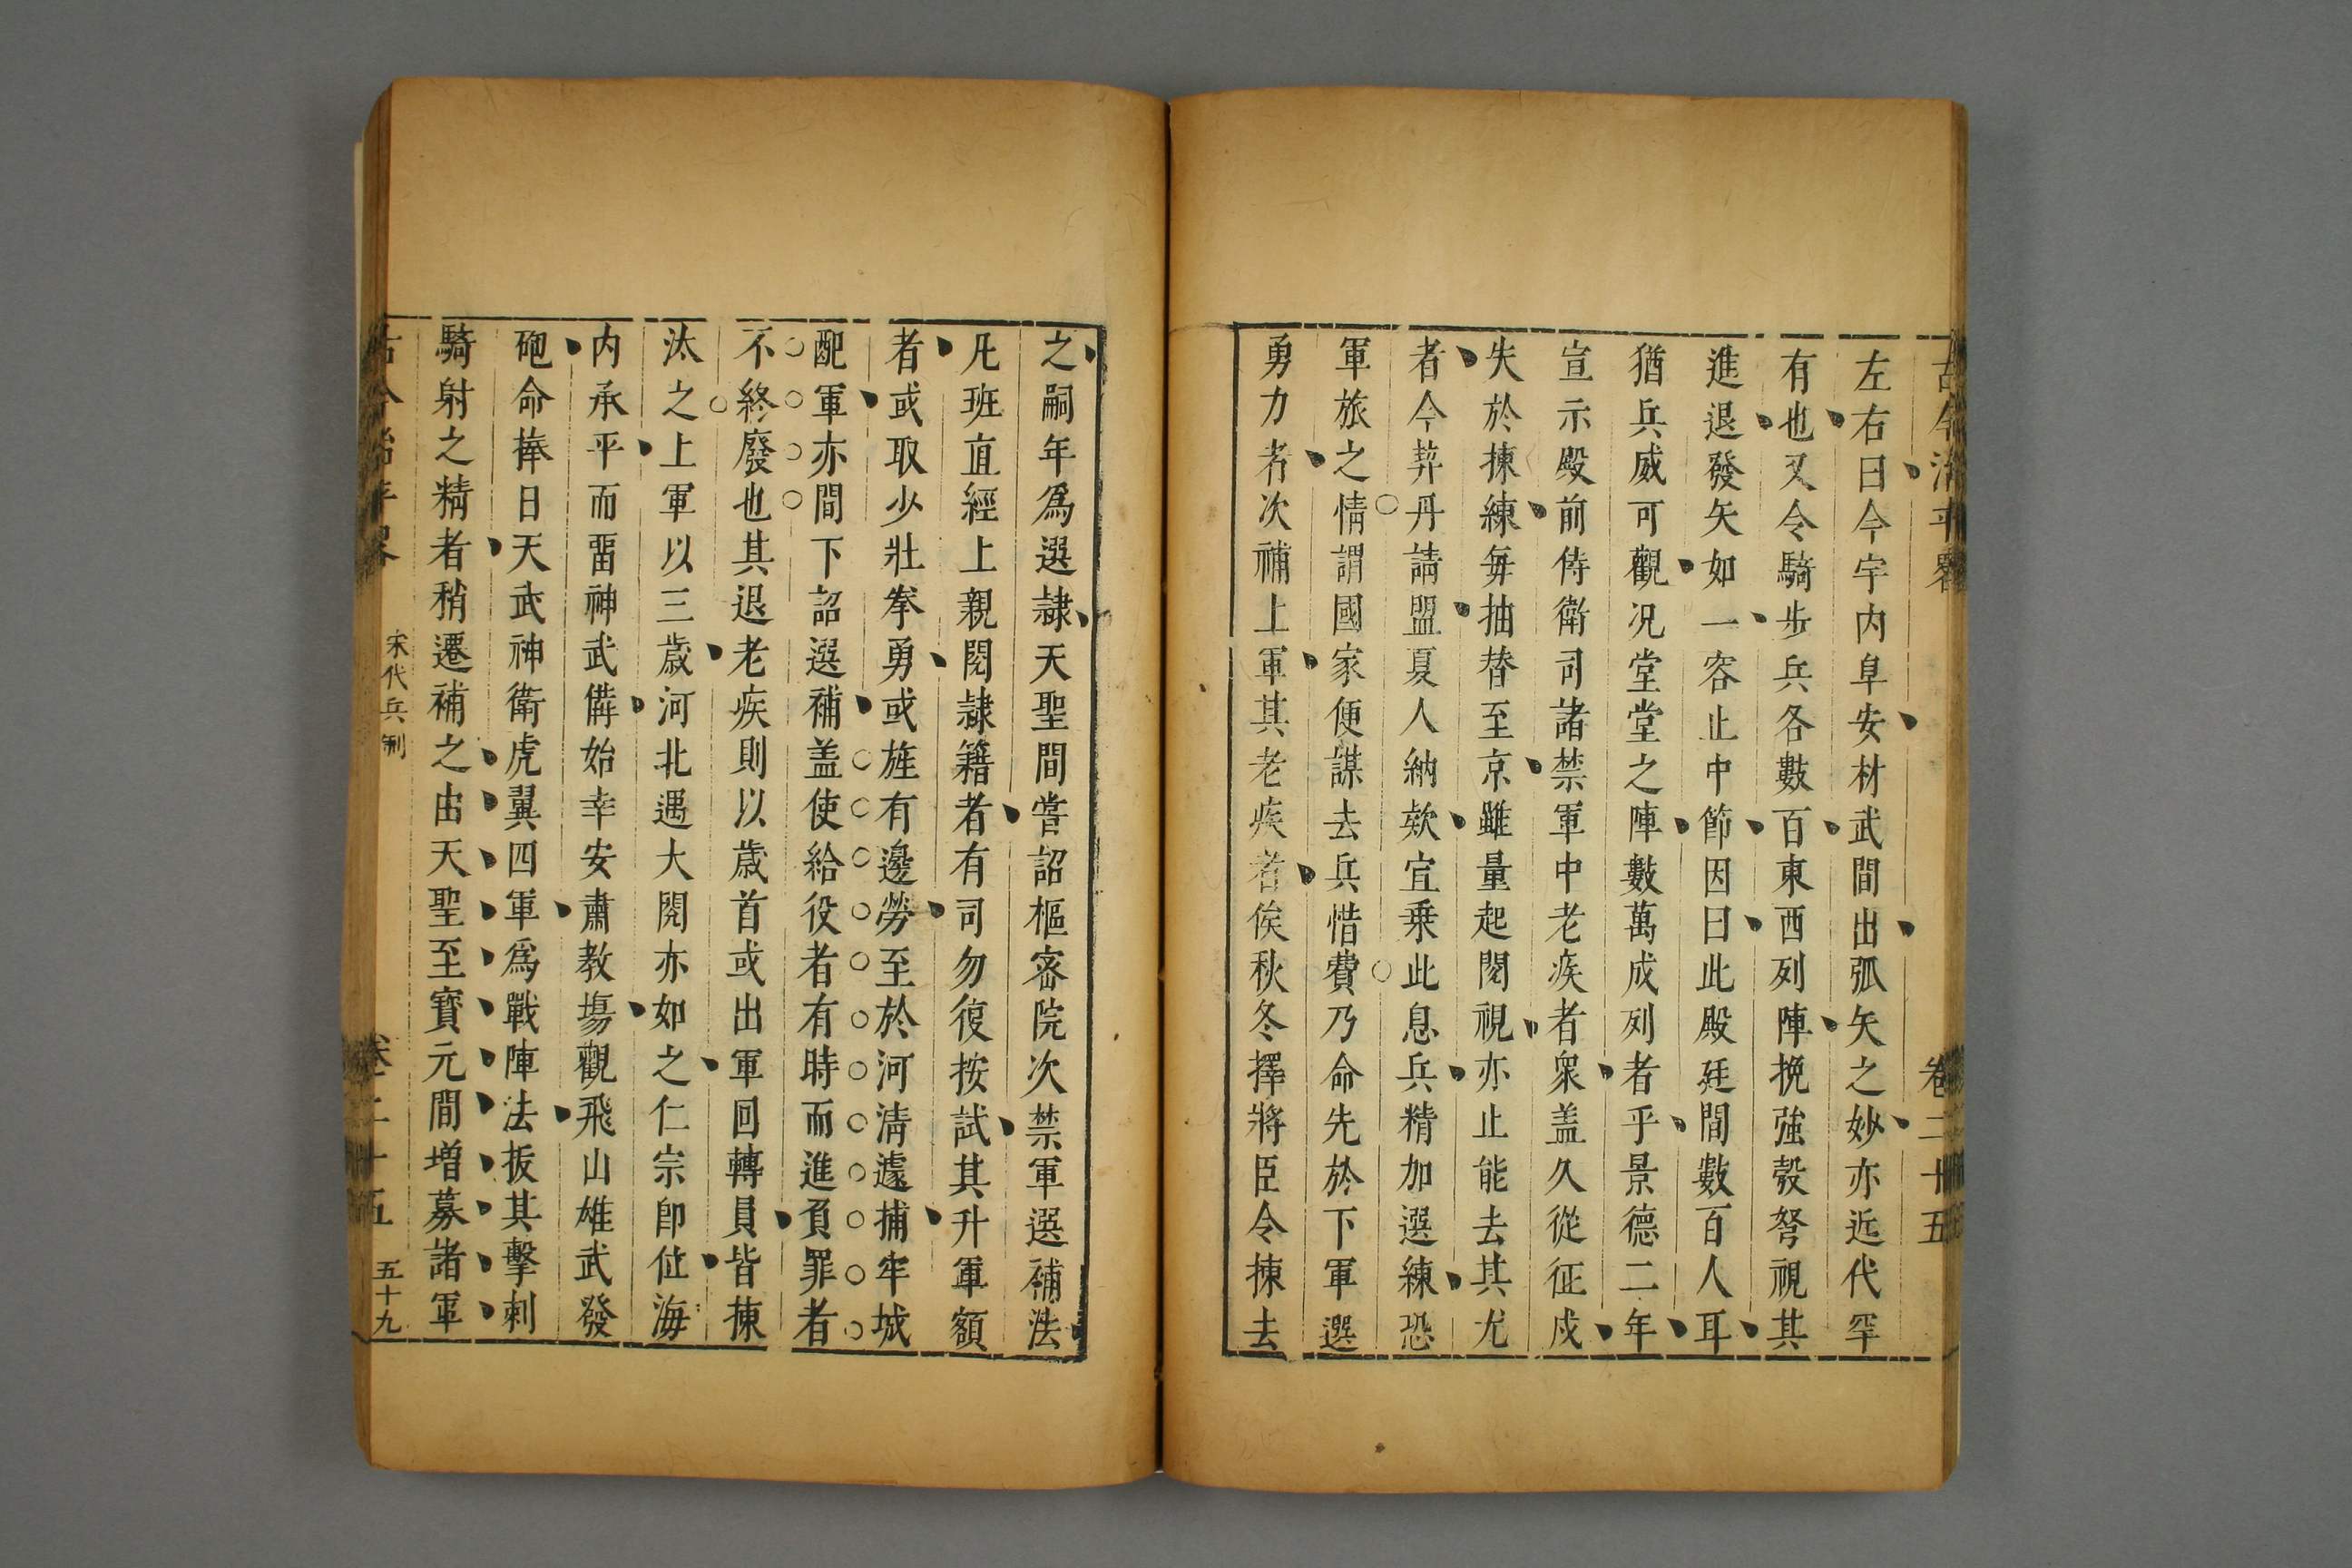 古今治平畧 卷二十五
左右曰今宇内阜安材武間出弧矢之妙亦近代罕
有也又令騎步兵各數百東西列陣挽強彀弩視其
進退發矢如一容止中節因曰此殿廷間數百人耳
猶兵威可觀况堂堂之陣數萬成列者乎景德二年
宣示殿前侍衛司諸禁軍中老疾者衆盖久從征戍
失於揀練毎抽替至京雖量起閱視亦止能去其尤
者今契丹請盟夏人納欵宜乗此息兵精加選練恐
軍旅之情謂國家便謀去兵惜費乃命先於下軍選
勇力者次補上軍其老疾者俟秋冬擇將臣令揀去
之嗣年爲選隷天聖間嘗詔樞密院次禁軍選補法
凡班直經上親閱隷籍者有司勿復按試其升軍額
者或取少壯拳勇或旌有邊勞至於河淸遽捕牢城
配軍亦間下詔選補盖使給役者有時而進負罪者
不終廢也其退老疾則以歲首或出軍回轉員皆揀
汰之上軍以三歲河北遇大閱亦如之仁宗卽位海
内承平而畱神武備始幸安肅教塲觀飛山雄武發
砲命捧日天武神衛虎翼四軍爲戰陣法拔其擊刺
騎射之精者稍遷補之由天聖至寳元間增募諸軍
古今治平畧 宋代兵制 卷二十五 五十九